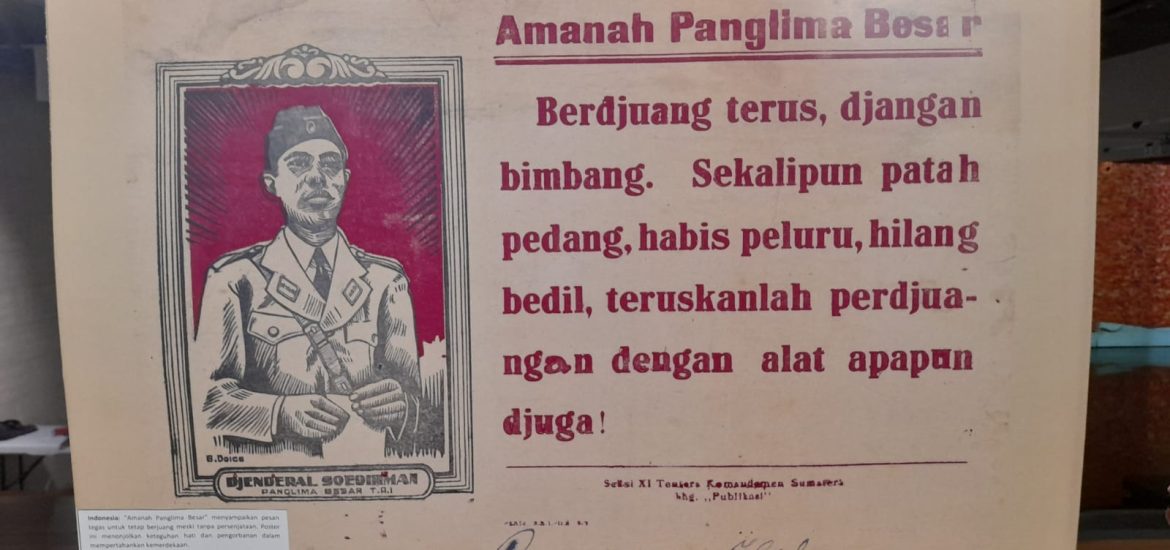 Amanah Panglima Besar
Berdjuang terus, djangan
bimbang. Sekalipun patah
pedang, habis peluru, hilang
bedil, teruskanlah perdjua-
ngan dengan alat apapun
djuga!
Seksi XI Tentera Komandemen Sumatera
bhg. „Publikasi"
B. Doies
DJENDERAL SOEDIRMAN
PANGLIMA BESAR T.R.I
Indonesia: "Amanah Panglima Besar" menyampaikan pesan
tegas untuk tetap berjuang meski tanpa persenjataan. Poster
ini menonjolkan keteguhan hati dan pengorbanan dalam
mempertahankan kemerdekaan.